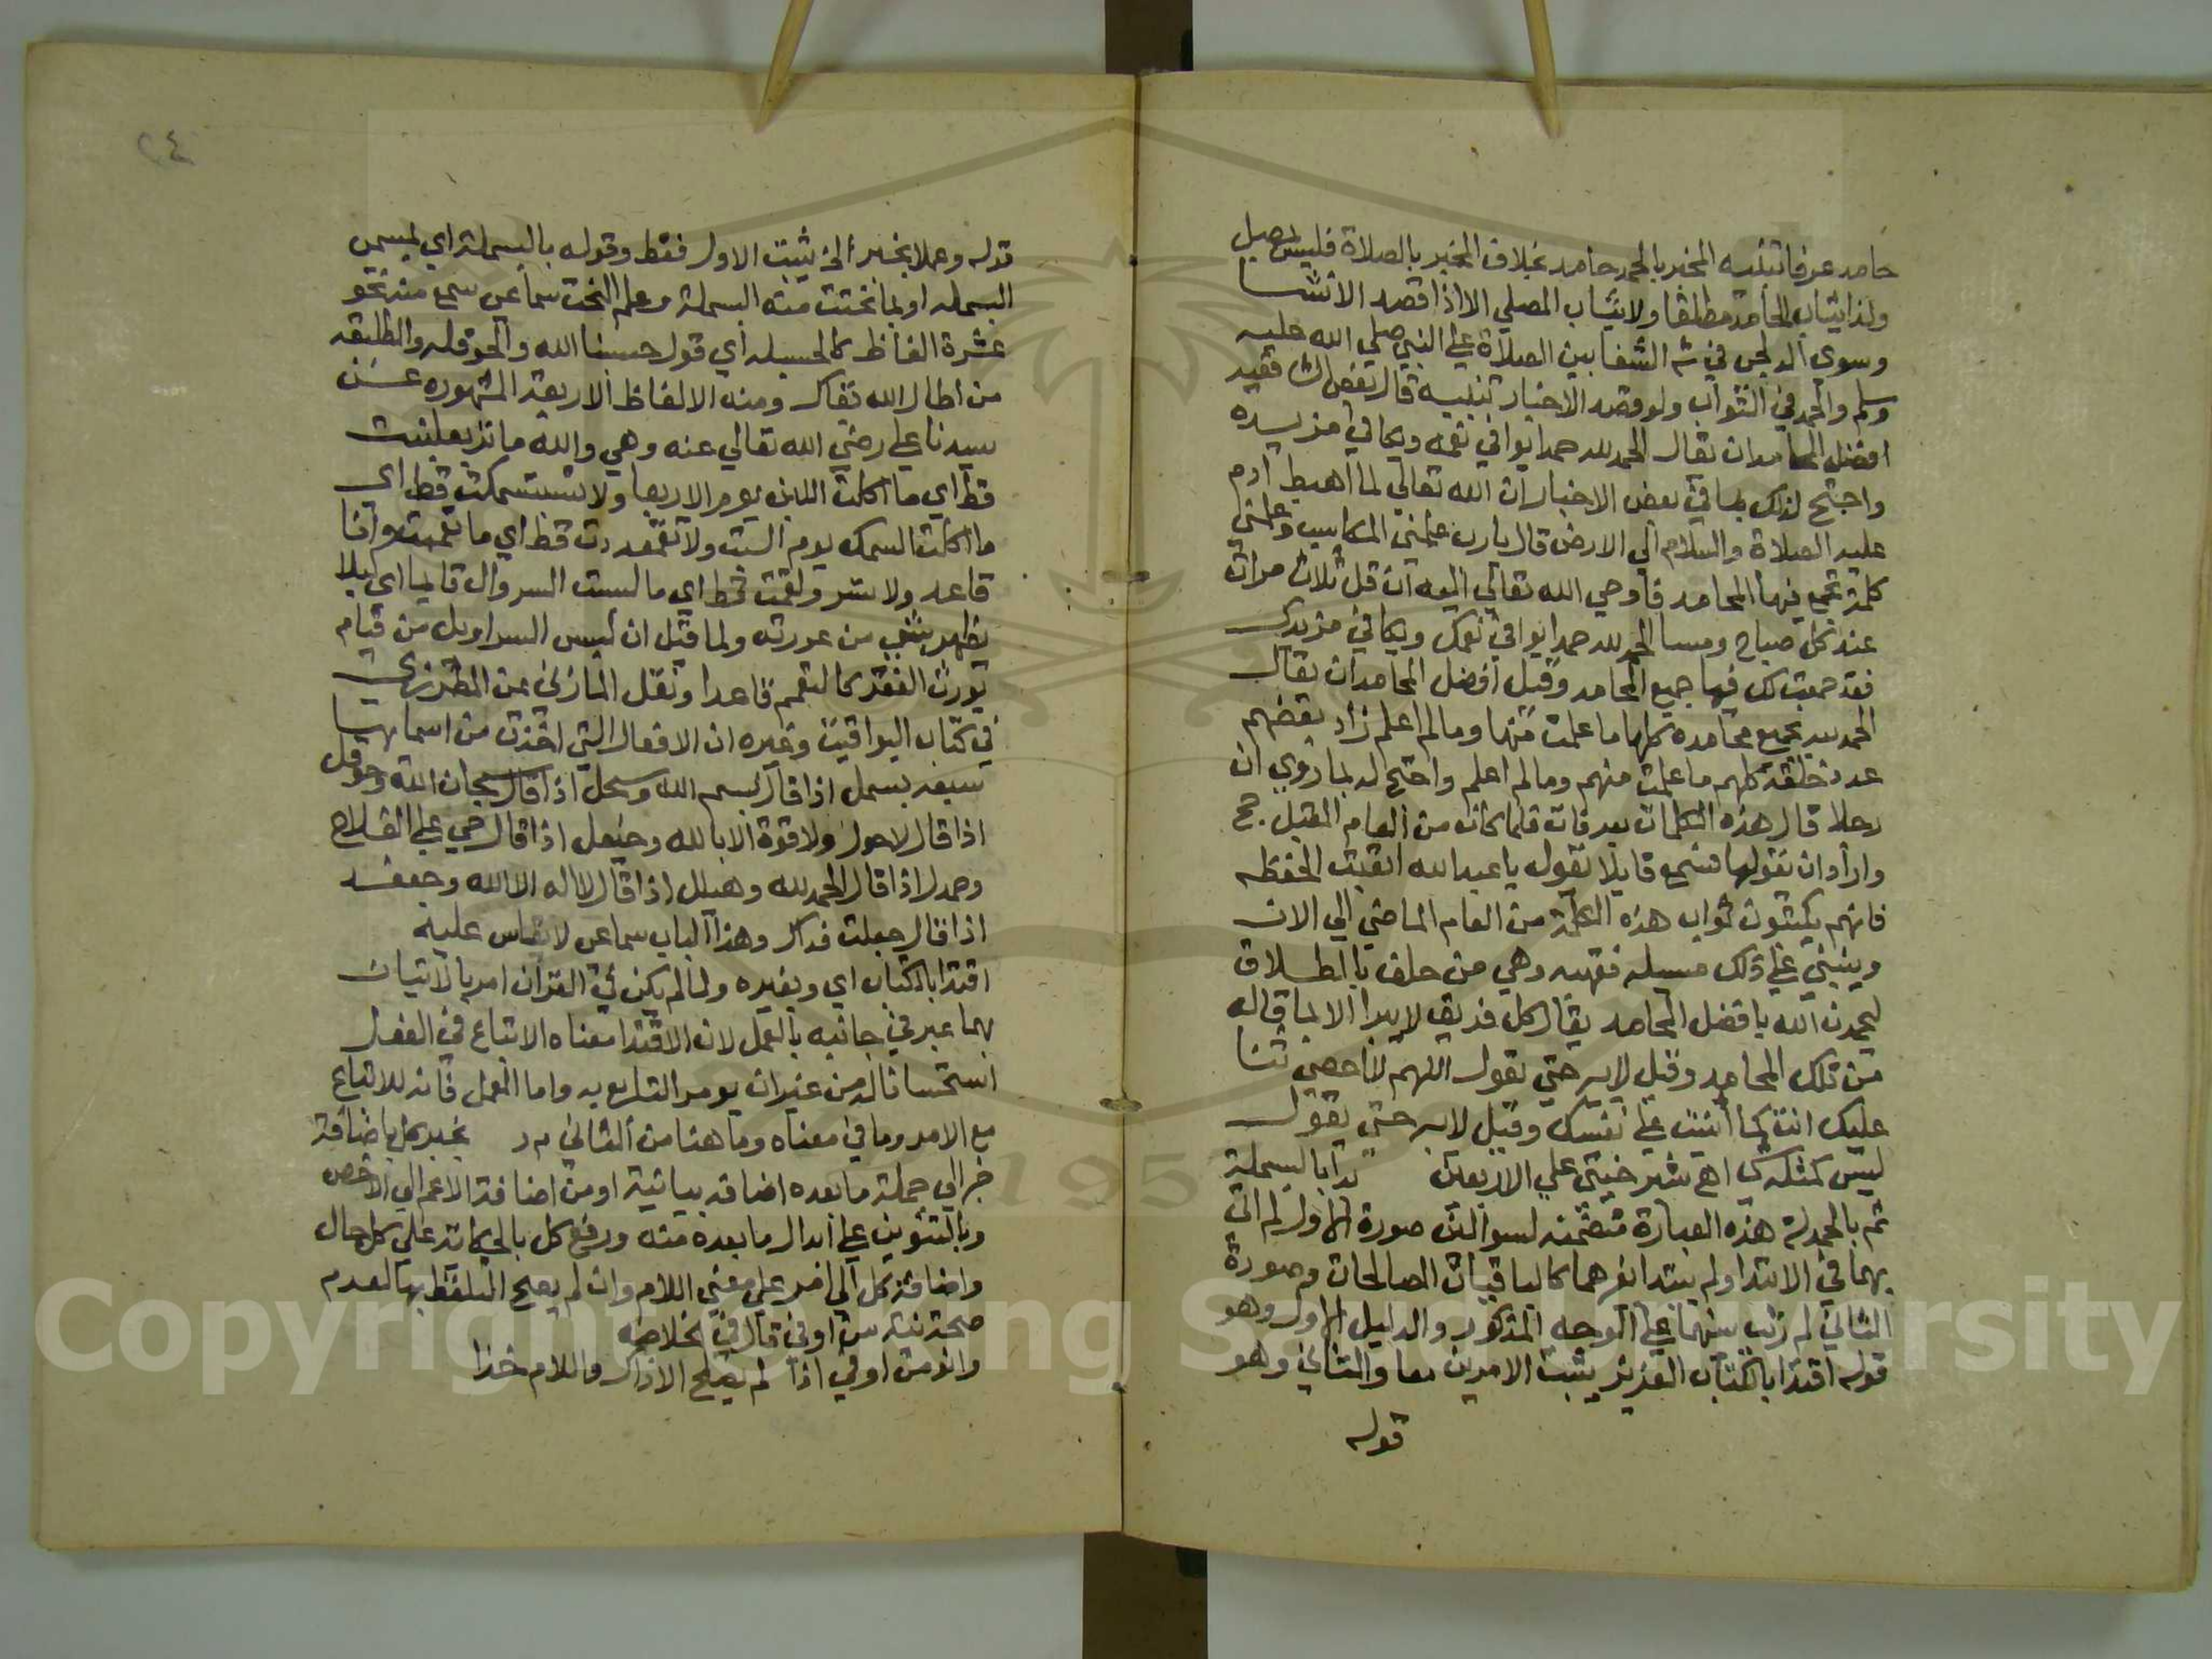 حامد عرفا تنبيه المخبر بالحمد حامد بخلاف المخبر بالصلاة فليس بمصل
ولذا يثاب الحامد مطلقا ولا يثاب المصلي الا اذا قصد الانشا
وسوى الدلجي في ش الشفا بين الصلاة علي النبي صلي الله عليه
وسلم والحمد في الثواب ولو قصد الاخبار تنبيه قال بعض
افضل المحامد ان يقال الحمد لله حمدا يوافي نعمه ويكافي مزيده
واحتج لذلك بما في بعض الاخبار ان الله تعالي لما اهبط ادم
عليه الصلاة والسلام الي الارض قال يارب علمني المكاسب وعلمني
كلمة تجمع فيها المحامد فاوحي الله تعالي اليه ان قل ثلاث مرات
عند كل صباح ومسا الحمد لله حمدا يوافي نعمك ويكافي مزيدك
فقد جمعت لك فيها جميع المحامد وقيل افضل المحامد ان يقال
الحمد لله بجميع محامده كلها ما علمت منها وما لم اعلم زاد بعضهم
عدد خلقه كلهم ما علمت منهم وما لم اعلم واحتج له بما روي ان
رجلا قال هذه الكلمات بعرفات فلما كان من العام المقبل حج
واراد ان يقولها فسمع قايلا يقول يا عبد الله اتعبت الحفظه
فانهم يكتبون ثواب هذه الكلمة من العام الماضي الي الان
وينبني علي ذلك مسيله فقهيه وهي من حلف بالطلاق
ليحمدن الله بافضل المحامد يقال كل فريق لا يبرا الا بما قاله
من تلك المحامد وقيل لا يبر حتي يقول اللهم لا احصي ثنا
عليك انت كما اثنيت علي نفسك وقيل لا يبر حتي يقول
ليس كمثله شي اهـ شبرخيتي علي الاربعين بدا بالبسملة
ثم بالحمدلة هذه العبارة متضمنه لسوالين صورة الاول لم اتي
بهما في الابتدا ولم يبتدا بغيرهما كالباقيات الصالحات وصورة
الثاني لم رتب بينهما علي الوجه المذكور والدليل الاول وهو
قوله اقتدا بالكتاب العزيز يثبت الامرين معا والثاني وهو
قوله
٢٤
قوله وعملا بخبر الخ يثبت الاول فقط وقوله بالبسملة اي بمسمي
البسمله او بما نحتت منه البسملة وعلم النحت سماعي سمع منه نحو
عشرة الفاظ كالحسبله اي قول حسبنا الله والحوقله والطلبقه
من اطال الله بقاك ومنه الالفاظ الاربعة المشهوره عن
سيدنا علي رضي الله تعالي عنه وهي والله ما تربعلبنت
قط اي ما اكلت اللبن يوم الاربعا ولا تسبتسمكت قط اي
ما اكلت السمك يوم السبت ولا تعمقعددت قط اي ما تعممت وانا
قاعد ولا تسرولقمت قط اي ما لبست السروال قايما اي ليلا
يظهر شي من عورته ولما قيل ان لبس السراويل من قيام
يورث الفقر كالتعمم قاعدا ونقل المازني عن المطرزي
في كتاب اليواقيت وغيره ان الافعال التي اخذت من اسمايها
سبعه بسمل اذا قال بسم الله وسبحل اذا قال سبحان الله وحوقل
اذا قال لا حول ولا قوة الا بالله وحيعل اذا قال حي علي الفلاح
وحمدل اذا قال الحمد لله وهيلل اذا قال لا اله الا الله وجعفد
اذا قال جعلت فداك وهذا الباب سماعي لا يقاس عليه
اقتدا بالكتاب اي وبغيره ولما لم يكن في القران امر بالاتيان
بهما عبر في جانبه بالعمل لان الاقتدا معناه الاتباع في الفعل
استحسانا له من غير ان يومر التابع به واما العمل فانه للاتباع
مع الامر وما في معناه وما هنا من الثاني م ر بخبر كل باضافة
خبر الي جملة ما بعده اضافه بيانية او من اضافة الاعم الي الاخص
وبالتنوين علي ابدال ما بعده منه ورفع كل بالحكاية علي كل حال
واضافة كل الي امر علي معني اللام وان لم يصح التلفظ بها لعدم
صحة نية من او في قال في الخلاصه
وانو من او في اذا لم يصلح الا ذاك واللام خذا